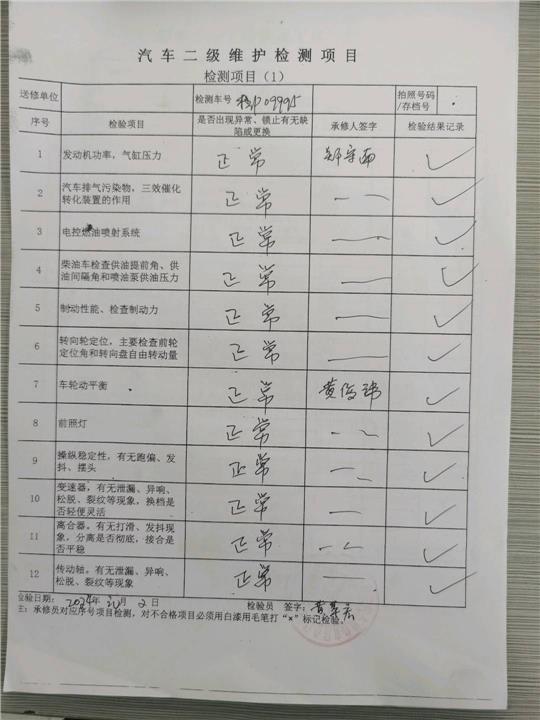 汽车二级维护检测项目
检测项目（1）
送修单位 检测车号 拍照号码/存档号
序号 检验项目 是否出现异常、锁止有无缺陷或更换 承修人签字 检验结果记录
1 发动机功率，气缸压力 正常 ✓
2 汽车排气污染物，三效催化转化装置的作用 正常 ✓
3 电控燃油喷射系统 正常 ✓
4 柴油车检查供油提前角、供油间隔角和喷油泵供油压力 正常 ✓
5 制动性能、检查制动力 正常 ✓
6 转向轮定位，主要检查前轮定位角和转向盘自由转动量 正常 ✓
7 车轮动平衡 正常 ✓
8 前照灯 正常 ✓
9 操纵稳定性，有无跑偏、发抖、摆头 正常 ✓
10 变速器，有无泄漏、异响、松脱、裂纹等现象，换档是否轻便灵活 正常 ✓
11 离合器，有无打滑、发抖现象，分离是否彻底，接合是否平稳 正常 ✓
12 传动轴，有无泄漏、异响、松脱、裂纹等现象 正常 ✓
检验日期： 年 月 2 日 检验员 签字：
注：承修员对应序号项目检测，对不合格项目必须用白漆用毛笔打“×”标记检验。